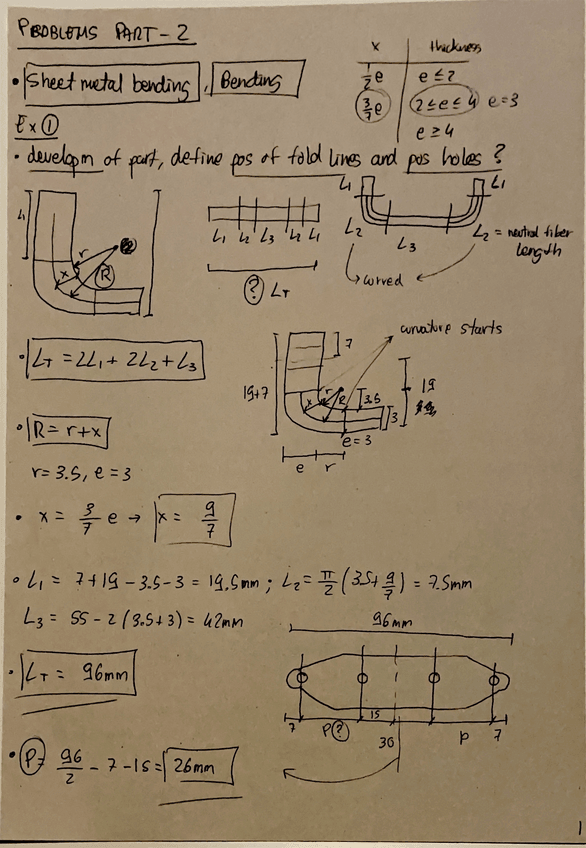 PROBLEMS PART-2
• Sheet metal bending, Bending
x thickness
1/2 e e ≤ 2
3/7 e 2 ≤ e ≤ 4 e=3
e ≥ 4
Ex ①
• developm of part, define pos of fold lines and pos holes?
L1
r
x
R
L1 L2 L3 L2 L1
? LT
L1 L1
L2 L3 L2 = neutral fiber length
curved
• LT = 2L1 + 2L2 + L3
curvature starts
7
19+7
r
x
R
3.5
19
3
e=3
e r
• R = r+x
r = 3.5, e = 3
• x = 3/7 e → x = 9/7
• L1 = 7+19-3.5-3 = 19.5mm ; L2 = π/2 (3.5+9/7) = 7.5mm
L3 = 55-2(3.5+3) = 42mm
• LT = 96mm
96mm
7 P? 15 p 7
30
• P = 96/2 - 7 - 15 = 26mm
1